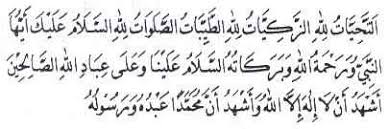 اَلتَّحِيَّاتُ لِلّٰهِ الزَّكِيَّاتُ لِلّٰهِ الطَّيِّبَاتُ الصَّلَوَاتُ لِلّٰهِ السَّلَامُ عَلَيْكَ اَيُّهَا
النَّبِيُّ وَرَحْمَةُ اللهِ وَبَرَكَاتُهُ السَّلَامُ عَلَيْنَا وَعَلَى عِبَادِ اللهِ الصَّالِحِيْنَ
اَشْهَدُ اَنْ لَا اِلٰهَ اِلَّا اللهُ وَاَشْهَدُ اَنَّ مُحَمَّدًا عَبْدُهُ وَرَسُوْلُهُ